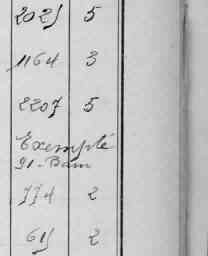 2025 5
1164 3
2207 5
Exempté
91-Bam
774 2
615 2